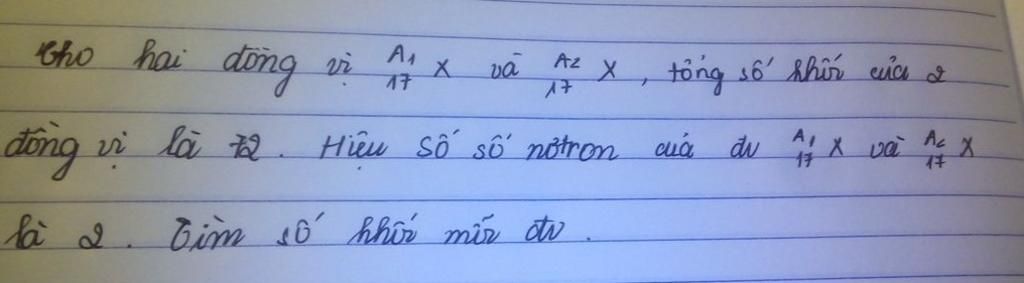 Cho hai đồng vị A1 17 X và A2 17 X, tổng số khối của 2
đồng vị là 72. Hiệu số số nơtron của đv A1 17 X và A2 17 X
là 2. Tìm số khối mỗi đv.